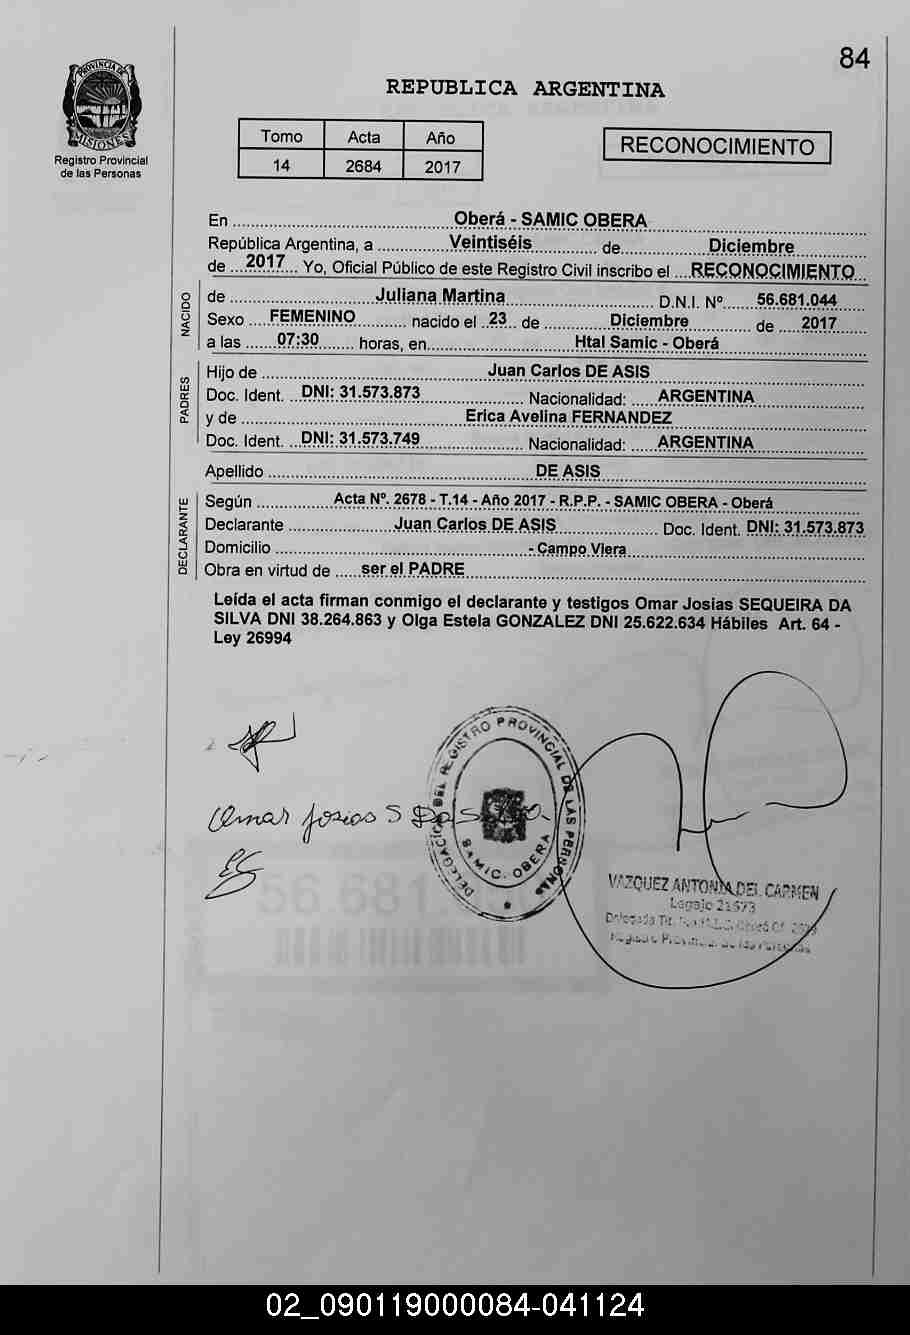 84
PROVINCIA DE
MISIONES
Registro Provincial
de las Personas
REPUBLICA ARGENTINA
Tomo Acta Año
14 2684 2017
RECONOCIMIENTO
En Oberá - SAMIC OBERA
República Argentina, a Veintiséis de Diciembre
de 2017 Yo, Oficial Público de este Registro Civil inscribo el RECONOCIMIENTO
NACIDO
de Juliana Martina D.N.I. Nº 56.681.044
Sexo FEMENINO nacido el 23 de Diciembre de 2017
a las 07:30 horas, en Htal Samic - Oberá
PADRES
Hijo de Juan Carlos DE ASIS
Doc. Ident. DNI: 31.573.873 Nacionalidad: ARGENTINA
y de Erica Avelina FERNANDEZ
Doc. Ident. DNI: 31.573.749 Nacionalidad: ARGENTINA
Apellido DE ASIS
DECLARANTE
Según Acta Nº. 2678 - T.14 - Año 2017 - R.P.P. - SAMIC OBERA - Oberá
Declarante Juan Carlos DE ASIS Doc. Ident. DNI: 31.573.873
Domicilio - Campo Viera
Obra en virtud de ser el PADRE
Leída el acta firman conmigo el declarante y testigos Omar Josias SEQUEIRA DA
SILVA DNI 38.264.863 y Olga Estela GONZALEZ DNI 25.622.634 Hábiles Art. 64 -
Ley 26994
DELEGACIÓN DEL REGISTRO PROVINCIAL DE LAS PERSONAS
SAMIC. OBERA
Omar Josias S Da
VAZQUEZ ANTONIA DEL CARMEN
Legajo 21573
Registro Provincial de las Personas
56.681
02_090119000084-041124